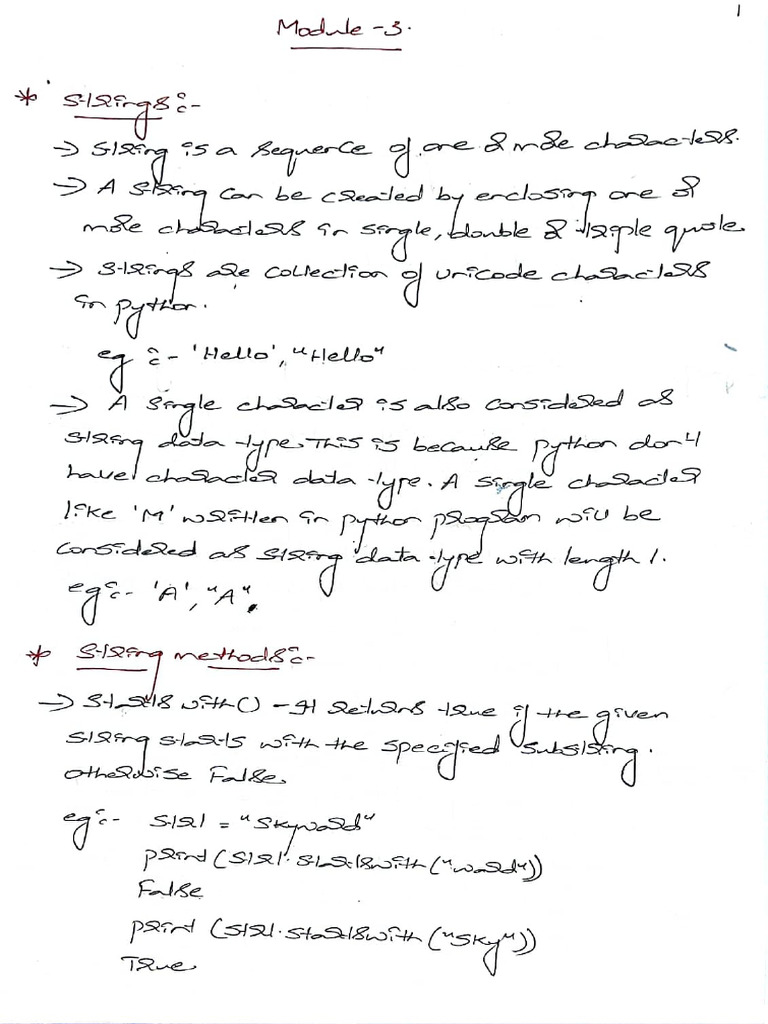 1
Module-3.
* Strings:-
→ String is a sequence of one or more characters.
→ A string can be created by enclosing one or
more characters in single, double or triple quote.
→ Strings are collection of unicode characters
in python.
eg :- 'Hello', "Hello"
→ A single character is also considered as
string data type. This is because python don't
have character data type. A single character
like 'M' written in python program will be
considered as string data type with length 1.
eg:- 'A', "A".
* String methods:-
→ Starts with() - It returns true if the given
string starts with the specified substring.
otherwise False.
eg:- str1 = "Skyward"
print (str1.startswith("ward"))
False
print (str1.startswith("Sky"))
True